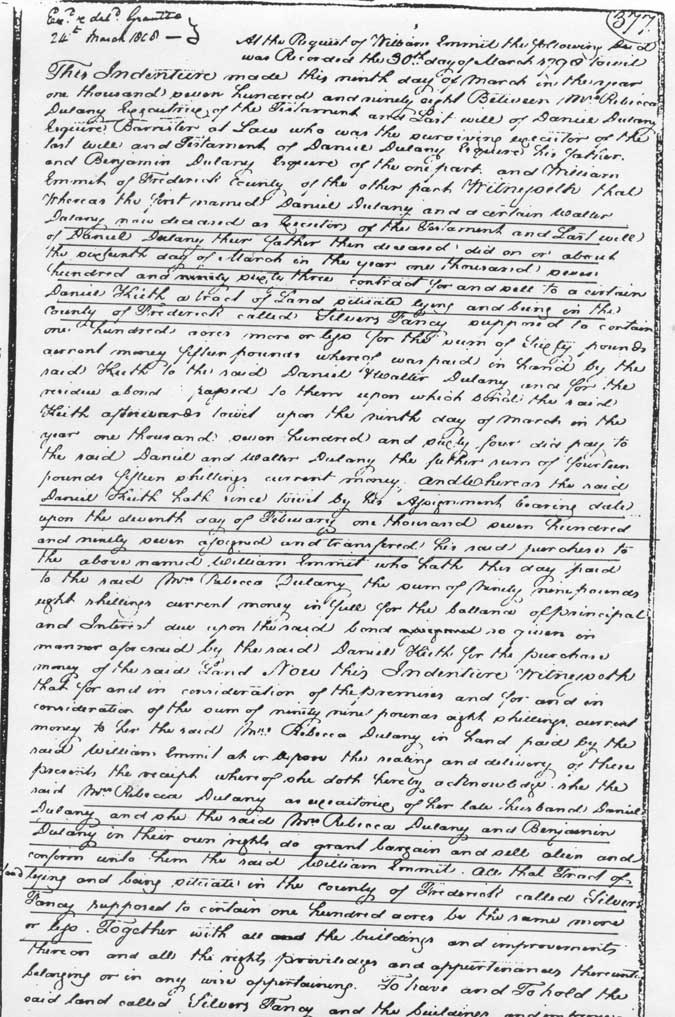 Exd. & deld. Grantee
24th March 1818
377
At the Request of William Emmit the following Deed
was Recorded the 30th day of March 1798 towit
This Indenture made this ninth day of March in the year
one thousand seven hundred and ninety eight Between Mrs Rebecca
Dulany Executrix of the Testament and Last will of Daniel Dulany
Esquire Barrister at Law who was the surviving executor of the
last will and Testament of Daniel Dulany Esquire his father.
and Benjamin Dulany Esquire of the one part and William
Emmit of Frederick County of the other part Witnesseth that
Whereas the first named Daniel Dulany and a certain Walter
Dulany now deceased as Executors of the Testament and Last will
of Daniel Dulany their father then deceased did on or about
the sixteenth day of March in the year one thousand seven
hundred and ninety sixty three contract for and sell to a certain
Daniel Keith a tract of Land situate lying and being in the
County of Frederick called Silvers Fancy supposed to contain
one hundred acres more or less for the sum of Sixty pounds
current money fifteen pounds whereof was paid in hand by the
said Keith to the said Daniel & Walter Dulany and for the
residue a bond passed to them upon which bond the said
Keith afterwards towit upon the ninth day of March in the
year one thousand seven hundred and sixty four did pay to
the said Daniel and Walter Dulany the futher sum of fourteen
pounds fifteen shillings current money. and Whereas the said
Daniel Keith hath since towit by his Assignment bearing date
upon the eleventh day of Febuary one thousand seven hundred
and ninety seven assigned and transfered his said purchase to
the above named William Emmit who hath this day paid
to the said Mrs Rebecca Dulany the sum of Ninety nine pounds
eight shillings current money in full for the ballance of principal
and Interest due upon the said bond so given in
manner aforesaid by the said Daniel Keith for the purchase
money of the said Land Now this Indenture Witnesseth
that for and in consideration of the premises and for and in
consideration of the sum of ninety nine pounds eight shillings current
money to her the said Mrs Rebecca Dulany in hand paid by the
said William Emmit at or upon the sealing and delivery of these
presents the receipt whereof she doth hereby acknowledge she the
said Mrs Rebecca Dulany as executrix of her late husband Daniel
Dulany and she the said Mrs Rebecca Dulany and Benjamin
Dulany in their own rights do grant bargain and sell alien and
conform unto them the said William Emmit. all that Tract of
land lying and being situate in the county of Frederick called Silvers
Fancy supposed to contain one hundred acres be the same more
or less. Together with all and the buildings and improvements
thereon and all the rights priviledges and appurtenances thereunto
belonging or in any wise appertaining. To have and To hold the
said land called Silvers Fancy and the buildings and